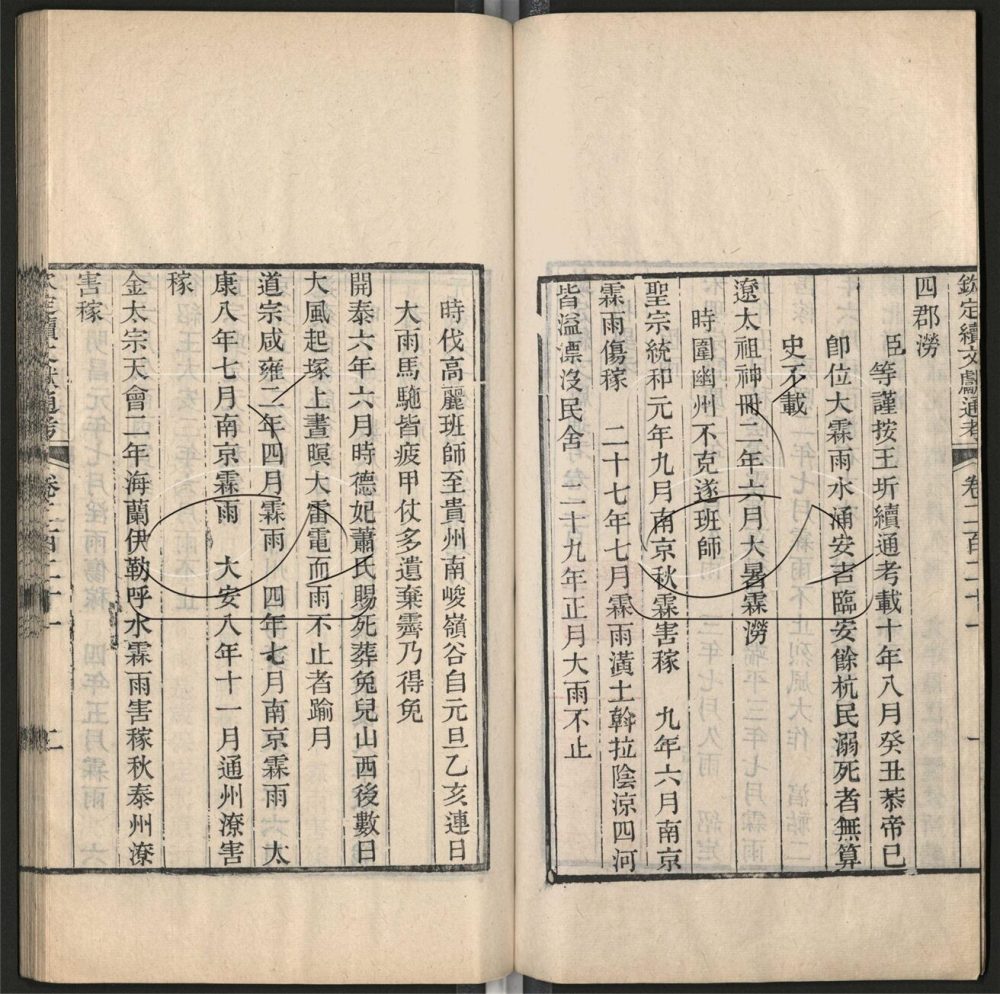 欽定續文獻通考 卷二百二十一 一
四郡澇
臣等謹按王圻續通考載十年八月癸丑恭帝已
卽位大霖雨水涌安吉臨安餘杭民溺死者無算
史不載
遼太祖神冊二年六月大暑霖澇
時圍幽州不克遂班師
聖宗統和元年九月南京秋霖害稼 九年六月南京
霖雨傷稼 二十七年七月霖雨潢土斡拉陰涼四河
皆溢漂沒民舍 二十九年正月大雨不止
時伐高麗班師至貴州南峻嶺谷自元旦乙亥連日
大雨馬駞皆疲甲仗多遺棄霽乃得免
開泰六年六月時德妃蕭氏賜死葬兔兒山西後數日
大風起塚上晝暝大雷電而雨不止者踰月
道宗咸雍二年四月霖雨 四年七月南京霖雨 太
康八年七月南京霖雨 大安八年十一月通州潦害
稼
金太宗天會二年海蘭伊勒呼水霖雨害稼秋泰州潦
害稼
欽定續文獻通考 卷二百二十一 二